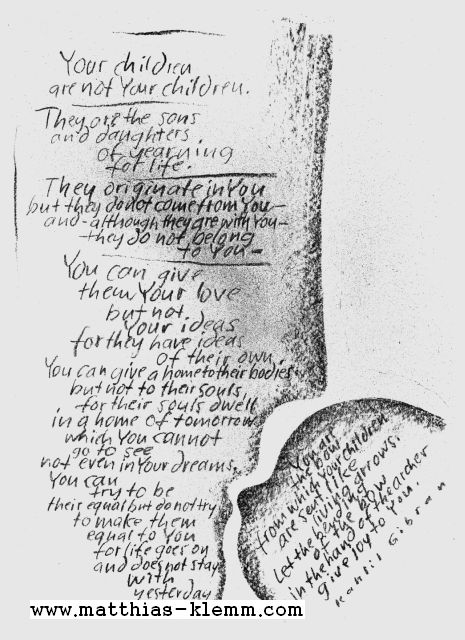 Your children
are not Your children.
They are the sons
and daughters
of yearning
for life.
They originate in You
but they do not come from You-
and - although they are with You-
-they do not belong
to You-
You can give
them Your love
but not
Your ideas
for they have ideas
of their own.
You can give a home to their bodies
but not to their souls
for their souls dwell
in a home of tomorrow
which You cannot
go to see
not even in Your dreams.
You can
try to be
their equal but do not try
to make them
equal to You
for life goes on
and does not stay
with
yesterday
You are
the bow
from which your children
are sent like
living arrows.
Let the bending
of the bow
in the hand of the archer
give joy to You.
Kahlil Gibran
www.matthias-klemm.com